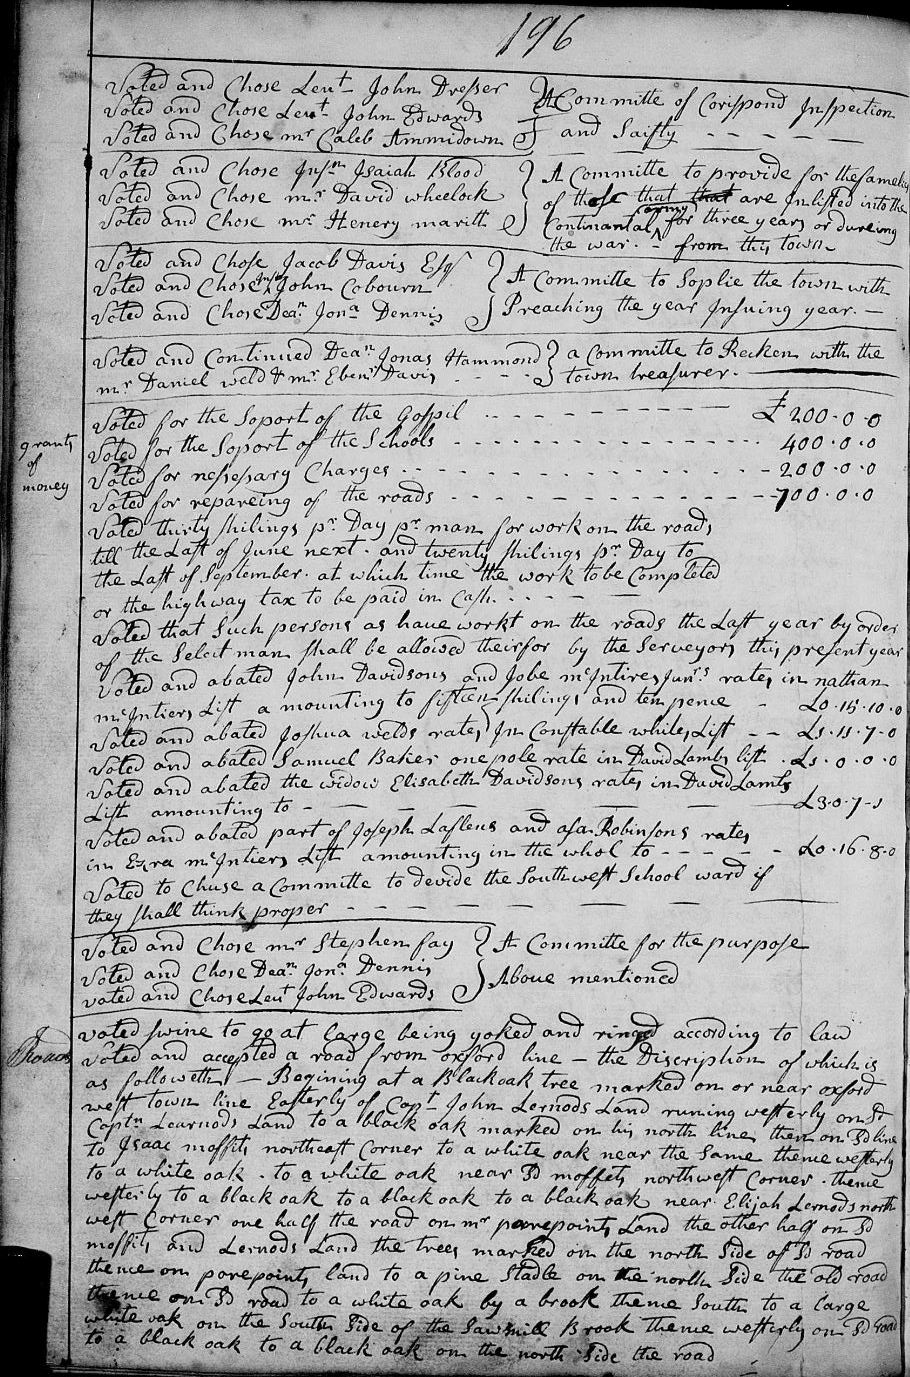 196
Voted and Chose Leut John Dresser
Voted and Chose Leut John Edwards
Voted and Chose mr Caleb Ammidown
A Committe of Corispond Inspection
and Saifty
Voted and Chose Insn Isaiah Blood
Voted and Chose mr David wheelock
Voted and Chose mr Henery maritt
A Committe to provide for the famelys
of those that that are Inlisted into the
Continantal army for three years or dureing
the war. - from this town
Voted and Chose Jacob Davis Esqr
Voted and Chose John Cobourn
Voted and Chose Dean Jona Dennis
A Committe to Soplie the town with
Preaching the year Insuing year. -
Voted and Continued Dean Jonas Hammond
mr Daniel weld & mr Ebenr Davis
a Committe to Recken with the
town treasurer.
grants
of
money
Voted for the Soport of the Gospil £200-0-0
Voted for the Soport of the Schools 400-0-0
Voted for nessesary Charges 200-0-0
Voted for repareing of the roads 700-0-0
Voted thirty shilings pr Day pr man for work on the roads
till the Last of June next. and twenty shilings pr Day to
the Last of September. at which time the work to be Completed
or the highway tax to be paid in Cash.
Voted that Such persons as haue workt on the roads the Last year by order
of the Select man shall be allowed theirfor by the Serveyors this present year
Voted and abated John Davidsons and Jobe mcIntires Junrs rates in nathan
mcIntiers List a mounting to fifteen shilings and ten pence - £0-15-10-0
Voted and abated Joshua welds rates In Constable whites List - - £1-11-7-0
Voted and abated Samuel Baker one pole rate in David Lambs list - £1-0-0-0
Voted and abated the widow Elisabeth Davidsons rates in David Lambs
List amounting to - £3-0-7-1
Voted and abated part of Joseph Lasleus and asa Robinsons rates
in Ezra mcIntiers List amounting in the whol to - £0-16-8-0
Voted to Chuse a Committe to devide the Southwest School ward if
they shall think proper
Voted and Chose mr Stephen fay
Voted and Chose Dean Jona Dennis
voted and Chose Leut John Edwards
A Committe for the purpose
Aboue mentioned
Roads
voted swine to go at large being yoked and ringed according to law
Voted and accepted a road from oxford line - the Discription of which is
as followeth - Begining at a Black oak tree marked on or near oxford
west town line Easterly of Capt John Lernods Land runing westerly on sd
Captn Learnods Land to a black oak marked on his north line then on Sd line
to Isaac moffits northeast Corner to a white oak near the Same thence westerly
to a white oak. to a white oak near Sd moffets northwest Corner. thence
westerly to a black oak to a black oak to a black oak near Elijah Lernods north
west Corner one half the road on mr porepoints Land the other half on Sd
moffits and Lernods Land the trees marked on the north Side of Sd road
thence on porepoints land to a pine Stadle on the north Side the old road
thence on Sd road to a white oak by a brook thence South to a large
white oak on the South Side of the Sawmill Brook thence westerly on Sd road
to a black oak to a black oak on the north Side the road